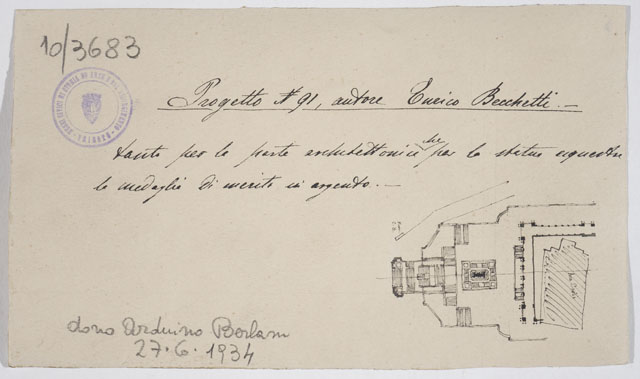 10/3683
Progetto N 91, autore Enrico Becchetti.—
tanto per la parte architettonica che per la statua equestre
la medaglia di merito in argento.—
dono Arduino Berlam
27.6.1934